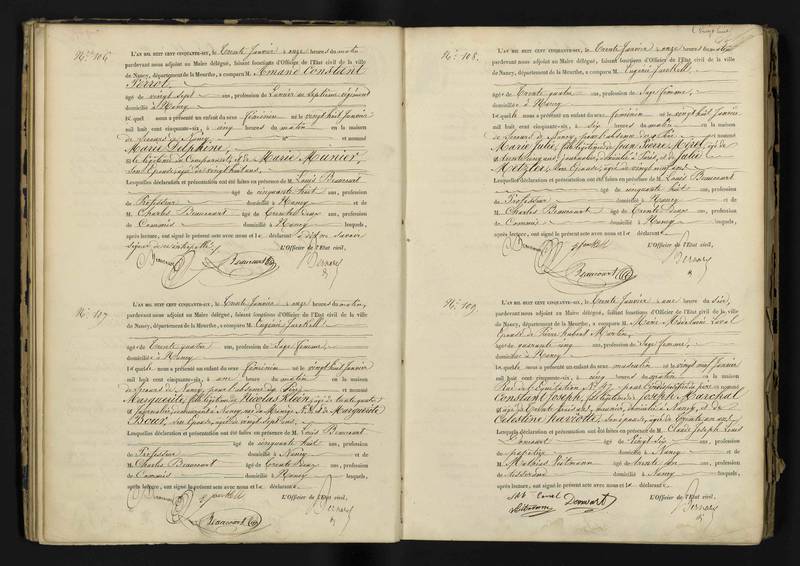 No. 106
L'AN MIL HUIT CENT CINQUANTE-SIX, le Trente Janvier à onze heures du matin
pardevant nous adjoint au Maire délégué, faisant fonctions d'Officier de l'État civil de la ville
de Nancy, département de la Meurthe, a comparu M. Amand Constant
Perrot,
âgé de vingt sept ans, profession de Lancier au septième régiment
domicilié à Nancy
lequel nous a présenté un enfant du sexe féminin né le vingt huit Janvier
mil huit cent cinquante-six, à cinq heures du matin en la maison
de Secours de Nancy et nommé
Marie Delphine,
fille légitime du Comparant et de Marie Munier,
son Épouse, âgée de vingt huit ans,
Lesquelles déclaration et présentation ont été faites en présence de M. Louis Beaucourt
âgé de cinquante huit ans, profession
de Professeur domicilié à Nancy et de
M. Charles Beaucourt âgé de Trente Deux ans, profession
de Commis domicilié à Nancy lesquels,
après lecture, ont signé le présent acte avec nous et le déclarant a dit ne savoir
signer de ce interpellé
L'Officier de l'État civil,
Beaucourt
Bernard
No. 107
L'AN MIL HUIT CENT CINQUANTE-SIX, le Trente Janvier à onze heures du matin,
pardevant nous adjoint au Maire délégué, faisant fonctions d'Officier de l'État civil de la ville
de Nancy, département de la Meurthe, a comparu M. Eugénie
âgée de Trente quatre ans, profession de Sage femme,
domiciliée à Nancy
lequelle nous a présenté un enfant du sexe féminin né le vingt huit Janvier
mil huit cent cinquante-six, à une heure du matin en la maison
de Secours de Nancy, pour l'absence du Père et nommé
Marguerite, fille légitime de Nicolas Klein, âgé de
et Journalier, demeurant à Nancy, rue du Manège No. et de Marguerite
Bour, son Épouse, âgée de vingt sept ans,
Lesquelles déclaration et présentation ont été faites en présence de M. Louis Beaucourt
âgé de cinquante huit ans, profession
de Professeur domicilié à Nancy et de
M. Charles Beaucourt âgé de Trente Deux ans, profession
de Commis domicilié à Nancy lesquels,
après lecture, ont signé le présent acte avec nous et le déclarant
L'Officier de l'État civil,
Beaucourt
Bernard
No. 108
L'AN MIL HUIT CENT CINQUANTE-SIX, le Trente Janvier à onze heures du matin
pardevant nous adjoint au Maire délégué, faisant fonctions d'Officier de l'État civil de la ville
de Nancy, département de la Meurthe, a comparu M. Eugénie
âgée de Trente quatre ans, profession de Sage femme,
domiciliée à Nancy
lequelle nous a présenté un enfant du sexe féminin né le vingt huit Janvier
mil huit cent cinquante-six, à six heures du matin en la maison
de Secours de Nancy, pour l'absence du Père et nommé
Marie Julie, fille légitime de Jean Pierre Féret, âgé de
trente cinq ans, Journalier, domicilié à Paris, et de Julie
Metzler, son Épouse, âgée de vingt neuf ans
Lesquelles déclaration et présentation ont été faites en présence de M. Louis Beaucourt
âgé de cinquante huit ans, profession
de Professeur domicilié à Nancy et de
M. Charles Beaucourt âgé de Trente Deux ans, profession
de Commis domicilié à Nancy lesquels,
après lecture, ont signé le présent acte avec nous et le déclarant
L'Officier de l'État civil,
Beaucourt
Bernard
No. 109
L'AN MIL HUIT CENT CINQUANTE-SIX, le Trente Janvier à une heure du soir,
pardevant nous adjoint au Maire délégué, faisant fonctions d'Officier de l'État civil de la ville
de Nancy, département de la Meurthe, a comparu M. Marie Madeleine
Pierre Hubert Martin,
âgée de soixante cinq ans, profession de Sage femme,
domiciliée à Nancy
lequelle nous a présenté un enfant du sexe masculin né le vingt neuf Janvier
mil huit cent cinquante-six, à cinq heures du matin en la maison
Rue de l'Équitation No. 47, pour l'indisposition du père et nommé
Constant Joseph, fils légitime de Joseph Marchal
et âgé de trente ans, domicilié à Nancy, et de
Célestine son épouse, âgée de
Lesquelles déclaration et présentation ont été faites en présence de M. Claude Joseph Louis
Domsart âgé de Vingt six ans, profession
de domicilié à Nancy et de
M. Mathias âgé de trente six ans, profession
de tisserand domicilié à Nancy lesquels,
après lecture, ont signé le présent acte avec nous et le déclarant
L'Officier de l'État civil,
Domsart
Bernard